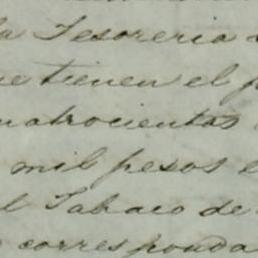 la Tesoreria
que tienen el
cuatrocientos
mil pesos
el Tabaco de
corresponda